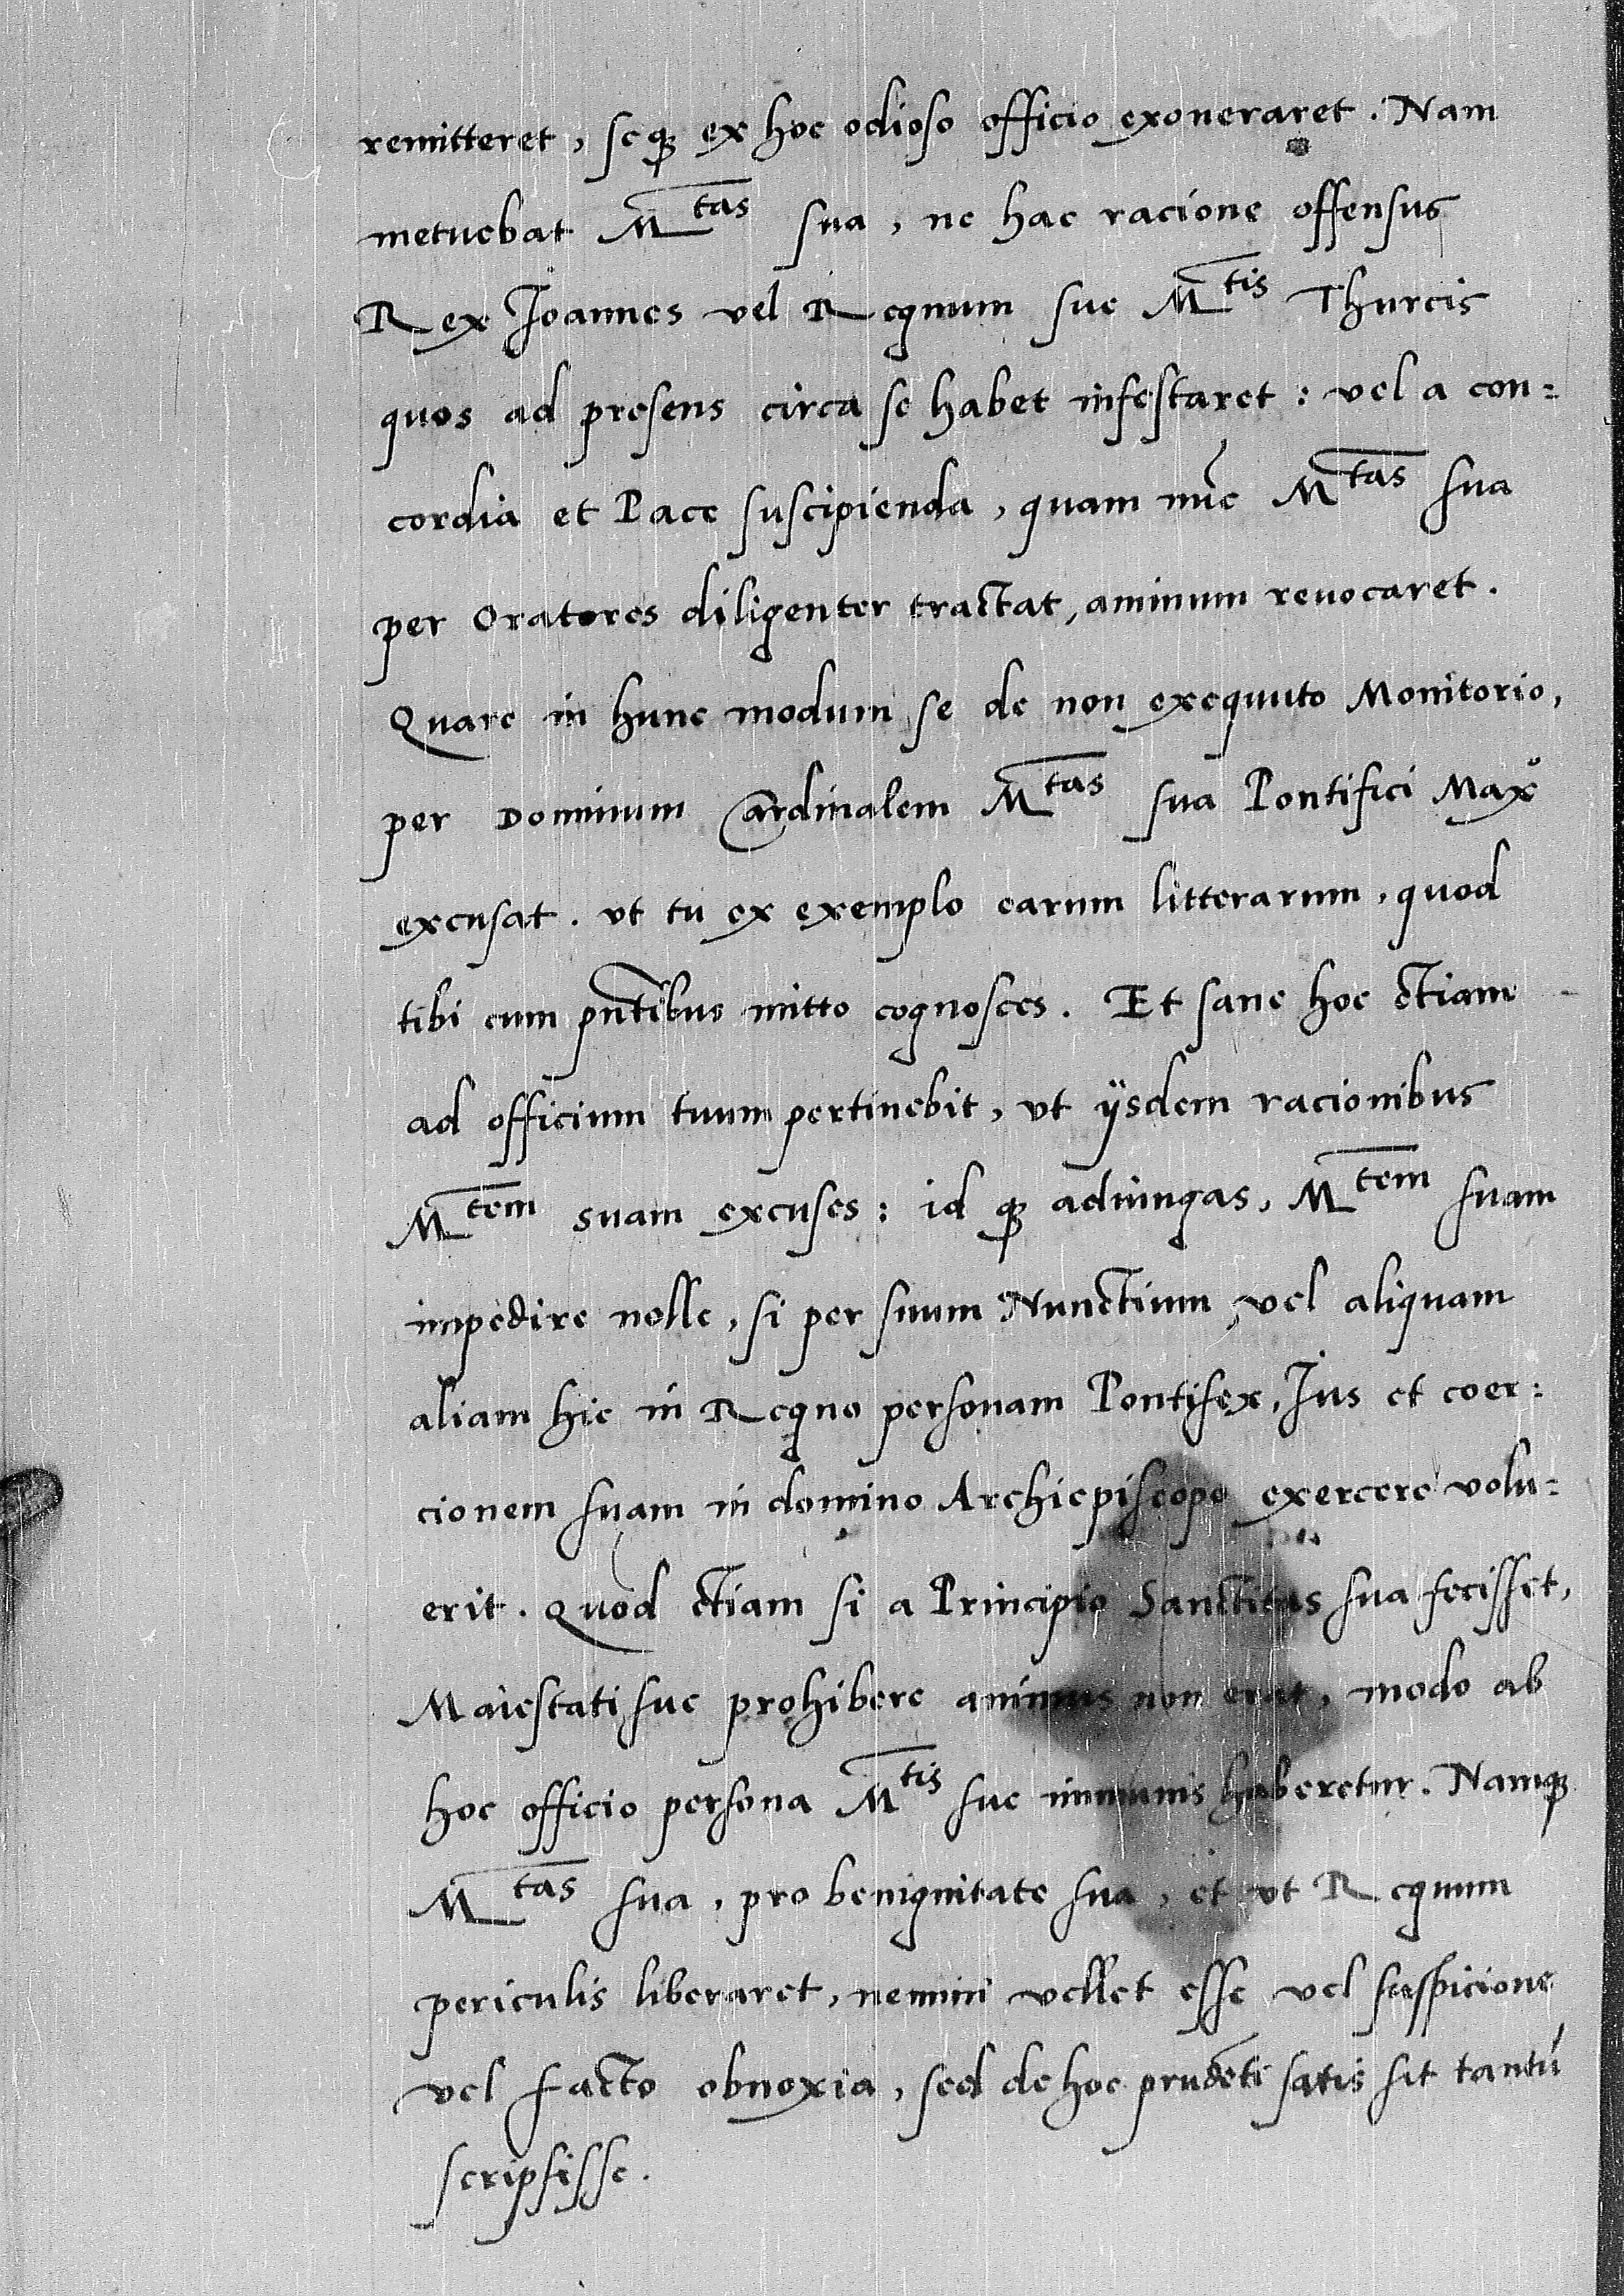 remitteret, seqꝫ ex hoc odioso officio exoneraret. Nam
metuebat M^tas sua, ne hac racione offensus
Rex Joannes vel Regnum sue M^tis Thurcis
quos ad presens circa se habet infestaret: vel a con=
cordia et Pace suscipienda, quam nūc M^tas sua
per Oratores diligenter tractat, animum reuocaret.
Quare in hunc modum se de non exequuto Monitorio,
per Dominum Cardinalem M^tas sua Pontifici Max°
excusat. vt tu ex exemplo earum litterarum, quod
tibi cum pn̄tibus mitto cognosces. Et sane hoc etiam
ad officium tuum pertinebit, vt ijsdem racionibus
M^tem suam excuses: id qꝫ adiungas, M^tem suam
impedire nolle, si per suum Nunctium, vel aliquam
aliam hic in Regno personam Pontifex, Jus et coer:
cionem suam in domino Archiepiscopo exercere volu=
erit. Quod etiam si a Principio Sanctitas sua fecisset,
Maiestati sue prohibere animus non erat, modo ab
hoc officio persona M^tis sue immunis haberetur. Namqꝫ
M^tas sua, pro benignitate sua, et vt Regnum
periculis liberaret, nemini vellet esse vel suspicione
vel facto obnoxia, sed de hoc prudēti satis sit tantū
scripsisse.